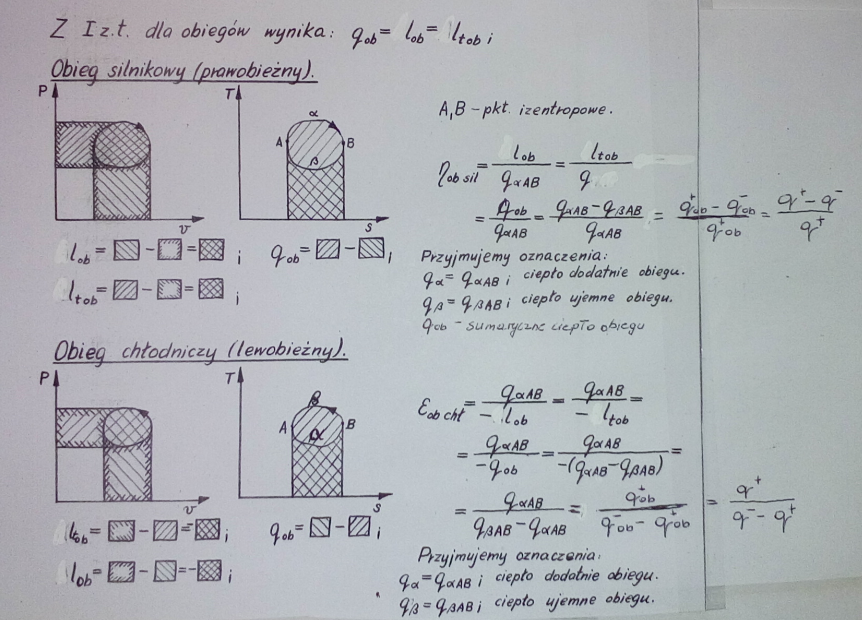 Z I z.t. dla obiegów wynika: q_ob = l_ob = l_tob ;
Obieg silnikowy (prawobieżny).
P
v
T
α
A
B
β
s
l_ob = ▧ - □ = ▩ ;
q_ob = ▨ - ▧ ;
l_tob = ▨ - □ = ▩ ;
A,B - pkt. izentropowe.
η_ob sil = l_ob / q_αAB = l_tob / q
= q_ob / q_αAB = (q_αAB - q_βAB) / q_αAB = (q⁺_ob - q⁻_ob) / q⁺_ob = (q⁺ - q⁻) / q⁺
Przyjmujemy oznaczenia:
q_α = q_αAB ; ciepło dodatnie obiegu.
q_β = q_βAB ; ciepło ujemne obiegu.
q_ob - sumaryczne ciepło obiegu
Obieg chłodniczy (lewobieżny).
P
v
T
β
A
B
α
s
l_tob = □ - ▨ = - ▩ ;
q_ob = ▧ - ▨ ;
l_ob = □ - ▧ = - ▩ ;
ε_ob chł = q_αAB / - l_ob = q_αAB / - l_tob =
= q_αAB / -q_ob = q_αAB / -(q_αAB - q_βAB) =
= q_αAB / (q_βAB - q_αAB) = q⁺_ob / (q⁻_ob - q⁺_ob) = q⁺ / (q⁻ - q⁺)
Przyjmujemy oznaczenia:
q_α = q_αAB ; ciepło dodatnie obiegu.
q_β = q_βAB ; ciepło ujemne obiegu.